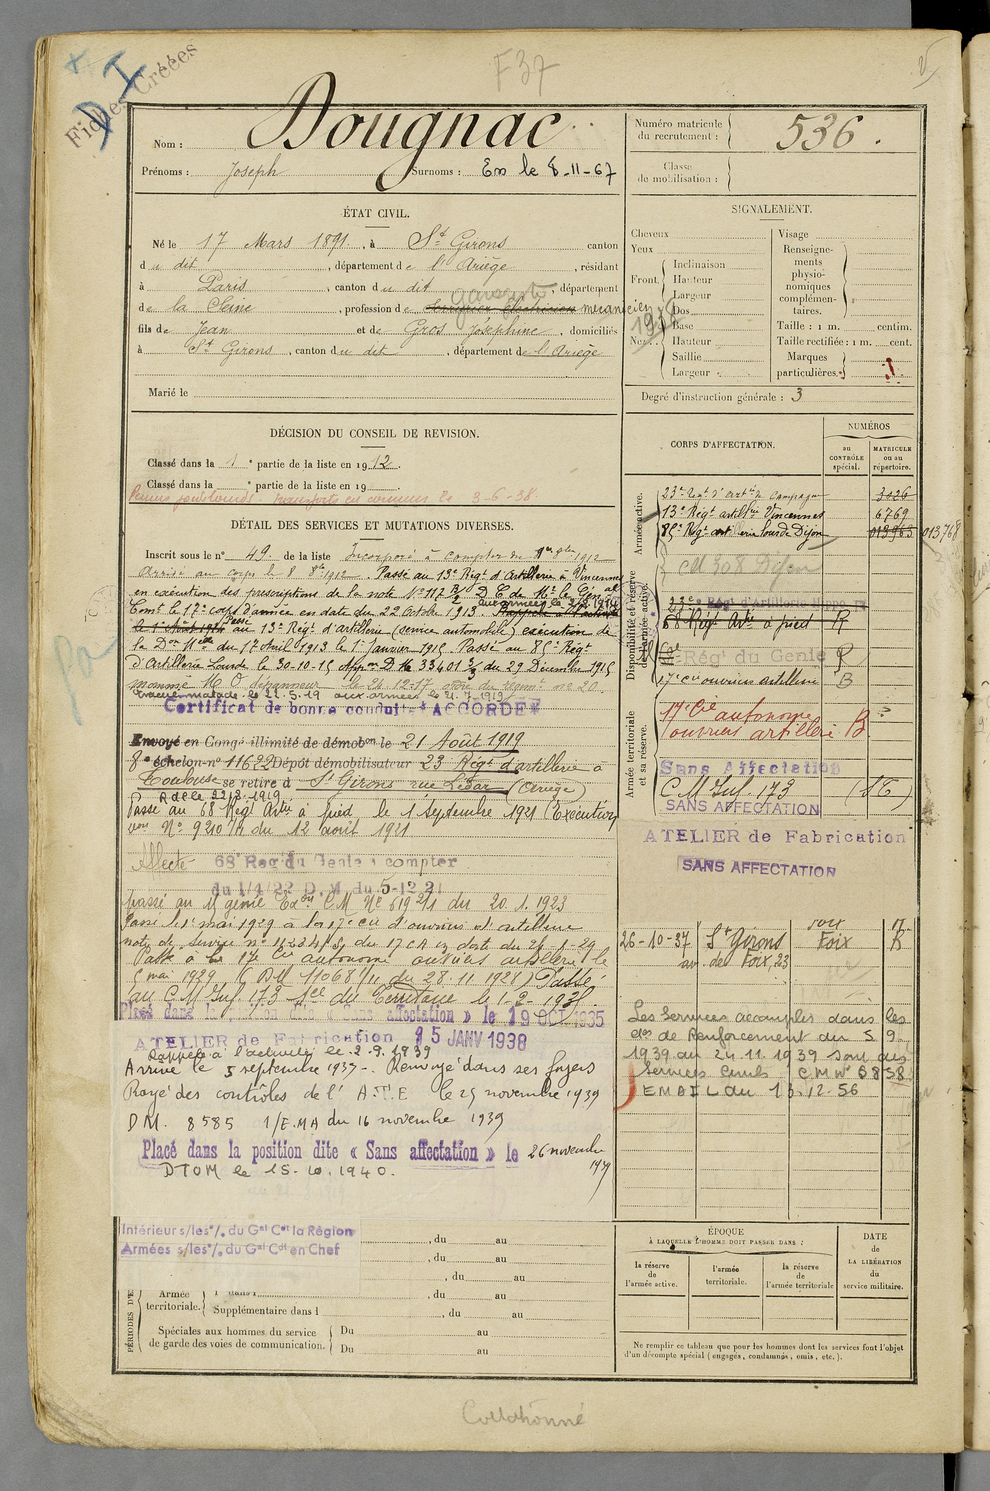 F 37
Fiches Créées
D I
Nom : Dougnac
Prénoms : Joseph Surnoms : Ex le 8-11-67
Numéro matricule du recrutement : 536.
Classe de mobilisation :
ÉTAT CIVIL.
Né le 17 Mars 1891, à St Girons canton
du dit, département de l'Ariège, résidant
à Paris, canton du dit, département
de la Seine, profession de mécanicien
fils de Jean et de Gros Joséphine, domiciliés
à St Girons, canton du dit, département de l'Ariège
Marié le
SIGNALEMENT.
Cheveux
Yeux
Front Inclinaison
Hauteur
Largeur
Nez Dos
Base
Hauteur
Saillie
Largeur
1938
Visage
Renseignements physionomiques complémentaires.
Taille : 1 m. centim.
Taille rectifiée : 1 m. cent.
Marques particulières.
Degré d'instruction générale : 3
DÉCISION DU CONSEIL DE REVISION.
Classé dans la 1e partie de la liste en 1912.
Classé dans la e partie de la liste en 19
3-6-38.
DÉTAIL DES SERVICES ET MUTATIONS DIVERSES.
Inscrit sous le n° 49. de la liste Incorporé à compter du 1er 8bre 1912
Arrivé au corps le 8 8bre 1912. Passé au 13e Régt d'Artillerie à Vincennes
en exécution des prescriptions de la note N° 117 D. C de Mr. le Génal
Comt le 17e corps d'armée en date du 22 Octobre 1913.
Aux armées le 2.8.1914
le 1er Août 1914 Passé au 13e Régt d'artillerie (service automobile) exécution de
la Don Melle du 15 Avril 1913 le 1er Janvier 1915 Passé au 85e Régt
d'Artillerie Lourde le 30-10-15 Appon D. M 33401 3/3 du 29 Décembre 1915
nommé M. O. dépanneur le 26-12-17 ordre du régimt no 20
Evacué malade le 22.5.19 aux armées le 21.7.1919
Certificat de bonne conduite ACCORDÉ
Envoyé en Congé illimité de démobon le 21 Août 1919
8e échelon-n° 11622 Dépôt démobilisateur 23 Régt d'artillerie à
Toulouse se retire à St Girons rue Lédar (Ariège)
Passé au 68 Régt Artie à pied le 1 septembre 1921 (Exécution
von N° 9210 1/4 du 12 août 1921
Affecté 68e Reg du Genie à compter
du 1/4/22 D.M. du 5-12 21
passé au 11 génie Exon C.M No 519 2/1 du 20.1.1923
Passé le 1er mai 1929 à la 17e Cie d'ouvriers d'artillerie
note de service no 1123 4/S, du 17 CA en date du 26-1-29
Passé à la 17e Cie autonome ouvriers artillerie le
mai 1929 (DM 11068 1/11 du 28.11.1928) Passé
au C M Inf. 173
Placé dans la position dite « Sans affectation » le 19 OCT 1935
ATELIER de Fabrication 15 JANV 1938
Rappelé à l'activité le 2.9.1939
Arrivé le 5 septembre 1939 - Renvoyé dans ses foyers
Rayé des contrôles de l'A.T.E le 25 novembre 1939
DM. 8585 1/E.MA du 16 novembre 1939
Placé dans la position dite « Sans affectation » le 26 novembre 1939
DTOM le 15-10.1940.
Intérieur s/les °/. du Gal Cdt la Région
Armées s/les °/. du Gal Cdt en Chef
, du au
, du au
, du au
PÉRIODES D'E
Armée territoriale. , du au
Supplémentaire dans l , du au
Spéciales aux hommes du service de garde des voies de communication. Du au
Du au
CORPS D'AFFECTATION.
NUMÉROS
au CONTRÔLE spécial.
MATRICULE ou au répertoire.
Armée active.
23e Régt d'Artie de Campagne 3026
13e Régt artillerie Vincennes 6769
85e Régt artillerie lourde Dijon 013963 013768
Disponibilité et réserve de l'armée active.
CM 308 Dijon
23e Régt d'Artillerie
68 Régt Artie à pied R
Rég' du Genie
17e Cie ouvriers artillerie B
Armée territoriale et sa réserve.
17e Cie autonome ouvriers artillerie B.
Sans Affectation
C M Inf. 173
SANS AFFECTATION
ATELIER de Fabrication
SANS AFFECTATION
26-10-37 St Girons Foix R
av. de Foix, 23
Les Services accomplis dans les
dts de Renforcement du 5 9.
1939 au 24.11.1939 sont des
Services Civils C M N° 6858
EMBIL du 13.12.56
ÉPOQUE
À LAQUELLE L'HOMME DOIT PASSER DANS :
la réserve de l'armée active.
l'armée territoriale.
la réserve de l'armée territoriale
DATE de LA LIBÉRATION du service militaire.
Ne remplir ce tableau que pour les hommes dont les services font l'objet
d'un décompte spécial (engagés, condamnés, omis, etc.).
Collationné